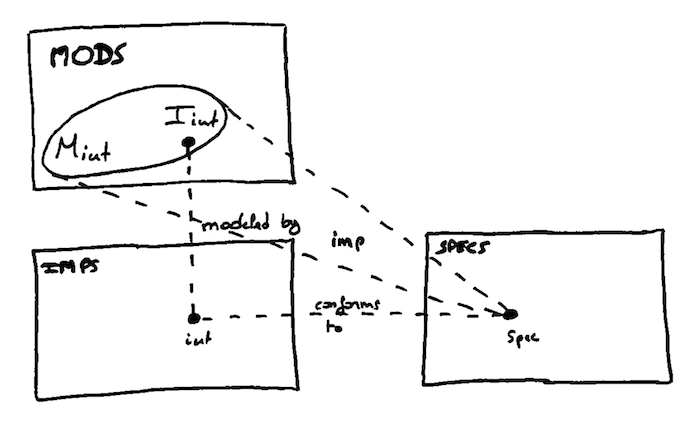 MODS
I int
M int
modeled by
imp
IMPS
SPECS
conforms
to
int
Spec